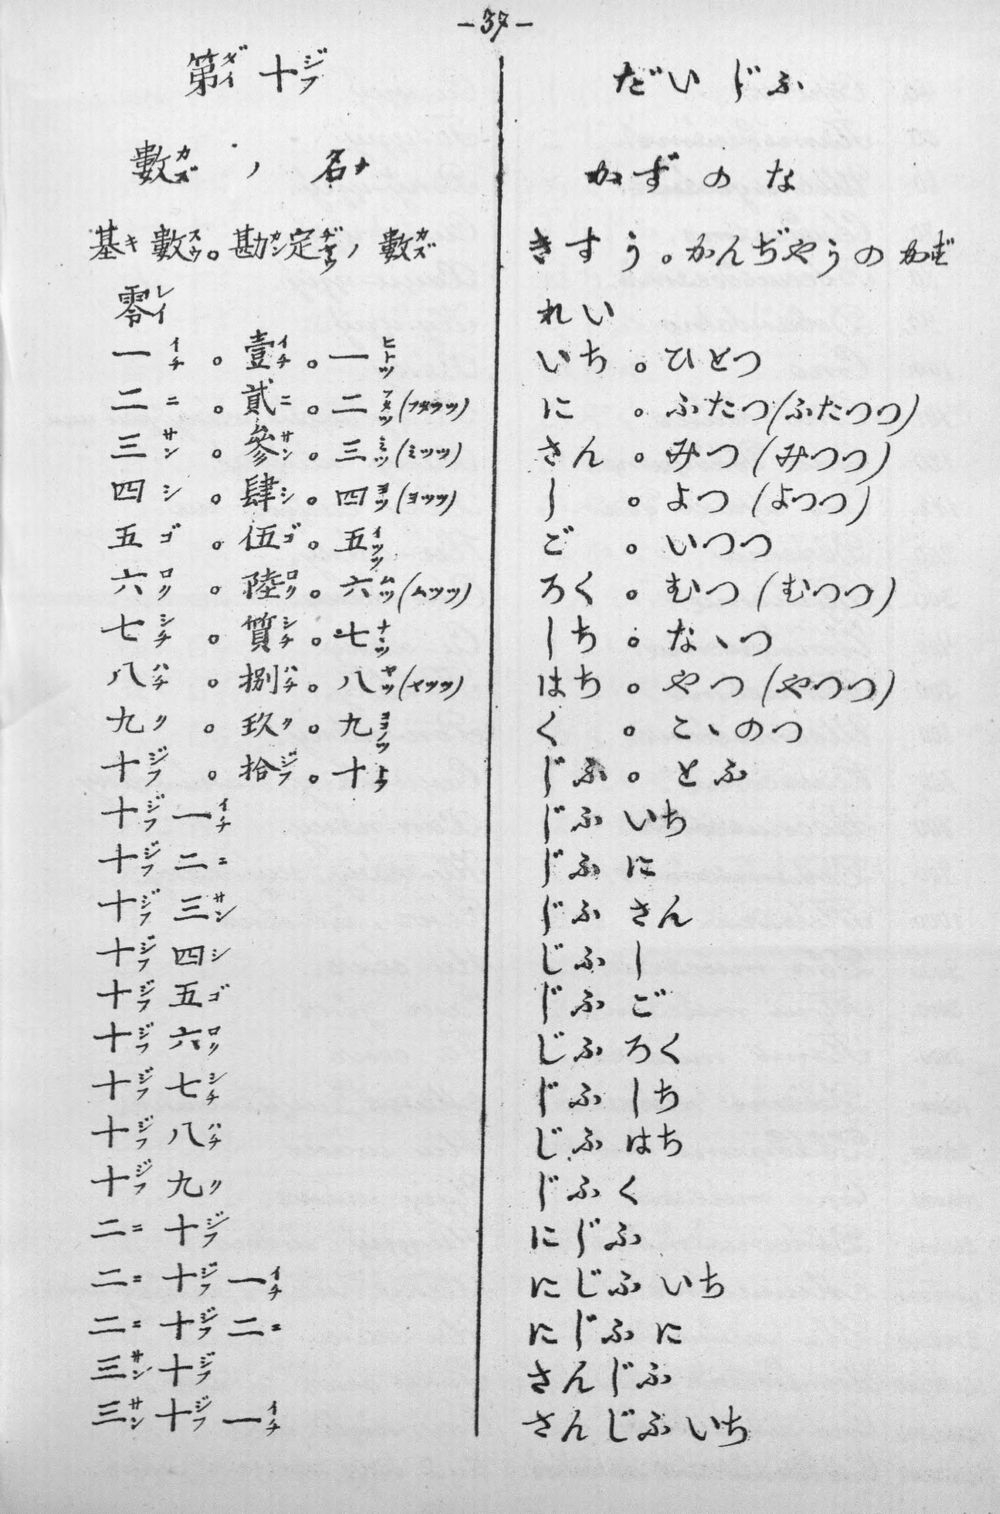 -37-
第ダイ 十ジフ
數カズ ノ 名ナ
基キ 數スウ。勘カン定ヂヤウノ 數カズ
零レイ
一イチ 。壹イチ。一ヒトツ
二ニ 。貳ニ。二フタツ(フタツツ)
三サン 。參サン。三ミツ(ミツツ)
四シ 。肆シ。四ヨツ(ヨツツ)
五ゴ 。伍ゴ。五イツツ
六ロク 。陸ロク。六ムツ(ムツツ)
七シチ 。質シチ。七ナヽツ
八ハチ 。捌ハチ。八ヤツ(ヤツツ)
九ク 。玖ク。九コヽノツ
十ジフ 。拾ジフ。十トフ
十ジフ 一イチ
十ジフ 二ニ
十ジフ 三サン
十ジフ 四シ
十ジフ 五ゴ
十ジフ 六ロク
十ジフ 七シチ
十ジフ 八ハチ
十ジフ 九ク
二ニ 十ジフ
二ニ 十ジフ 一イチ
二ニ 十ジフ 二ニ
三サン 十ジフ
三サン 十ジフ 一イチ
だい じふ
かず の な
き すう。かんぢやうの かず
れい
いち 。ひとつ
に 。ふたつ(ふたつつ)
さん 。みつ(みつつ)
し 。よつ(よつつ)
ご 。いつつ
ろく 。むつ(むつつ)
しち 。なゝつ
はち 。やつ(やつつ)
く 。こゝのつ
じふ 。とふ
じふ いち
じふ に
じふ さん
じふ し
じふ ご
じふ ろく
じふ しち
じふ はち
じふ く
にじふ
にじふ いち
にじふ に
さんじふ
さんじふ いち